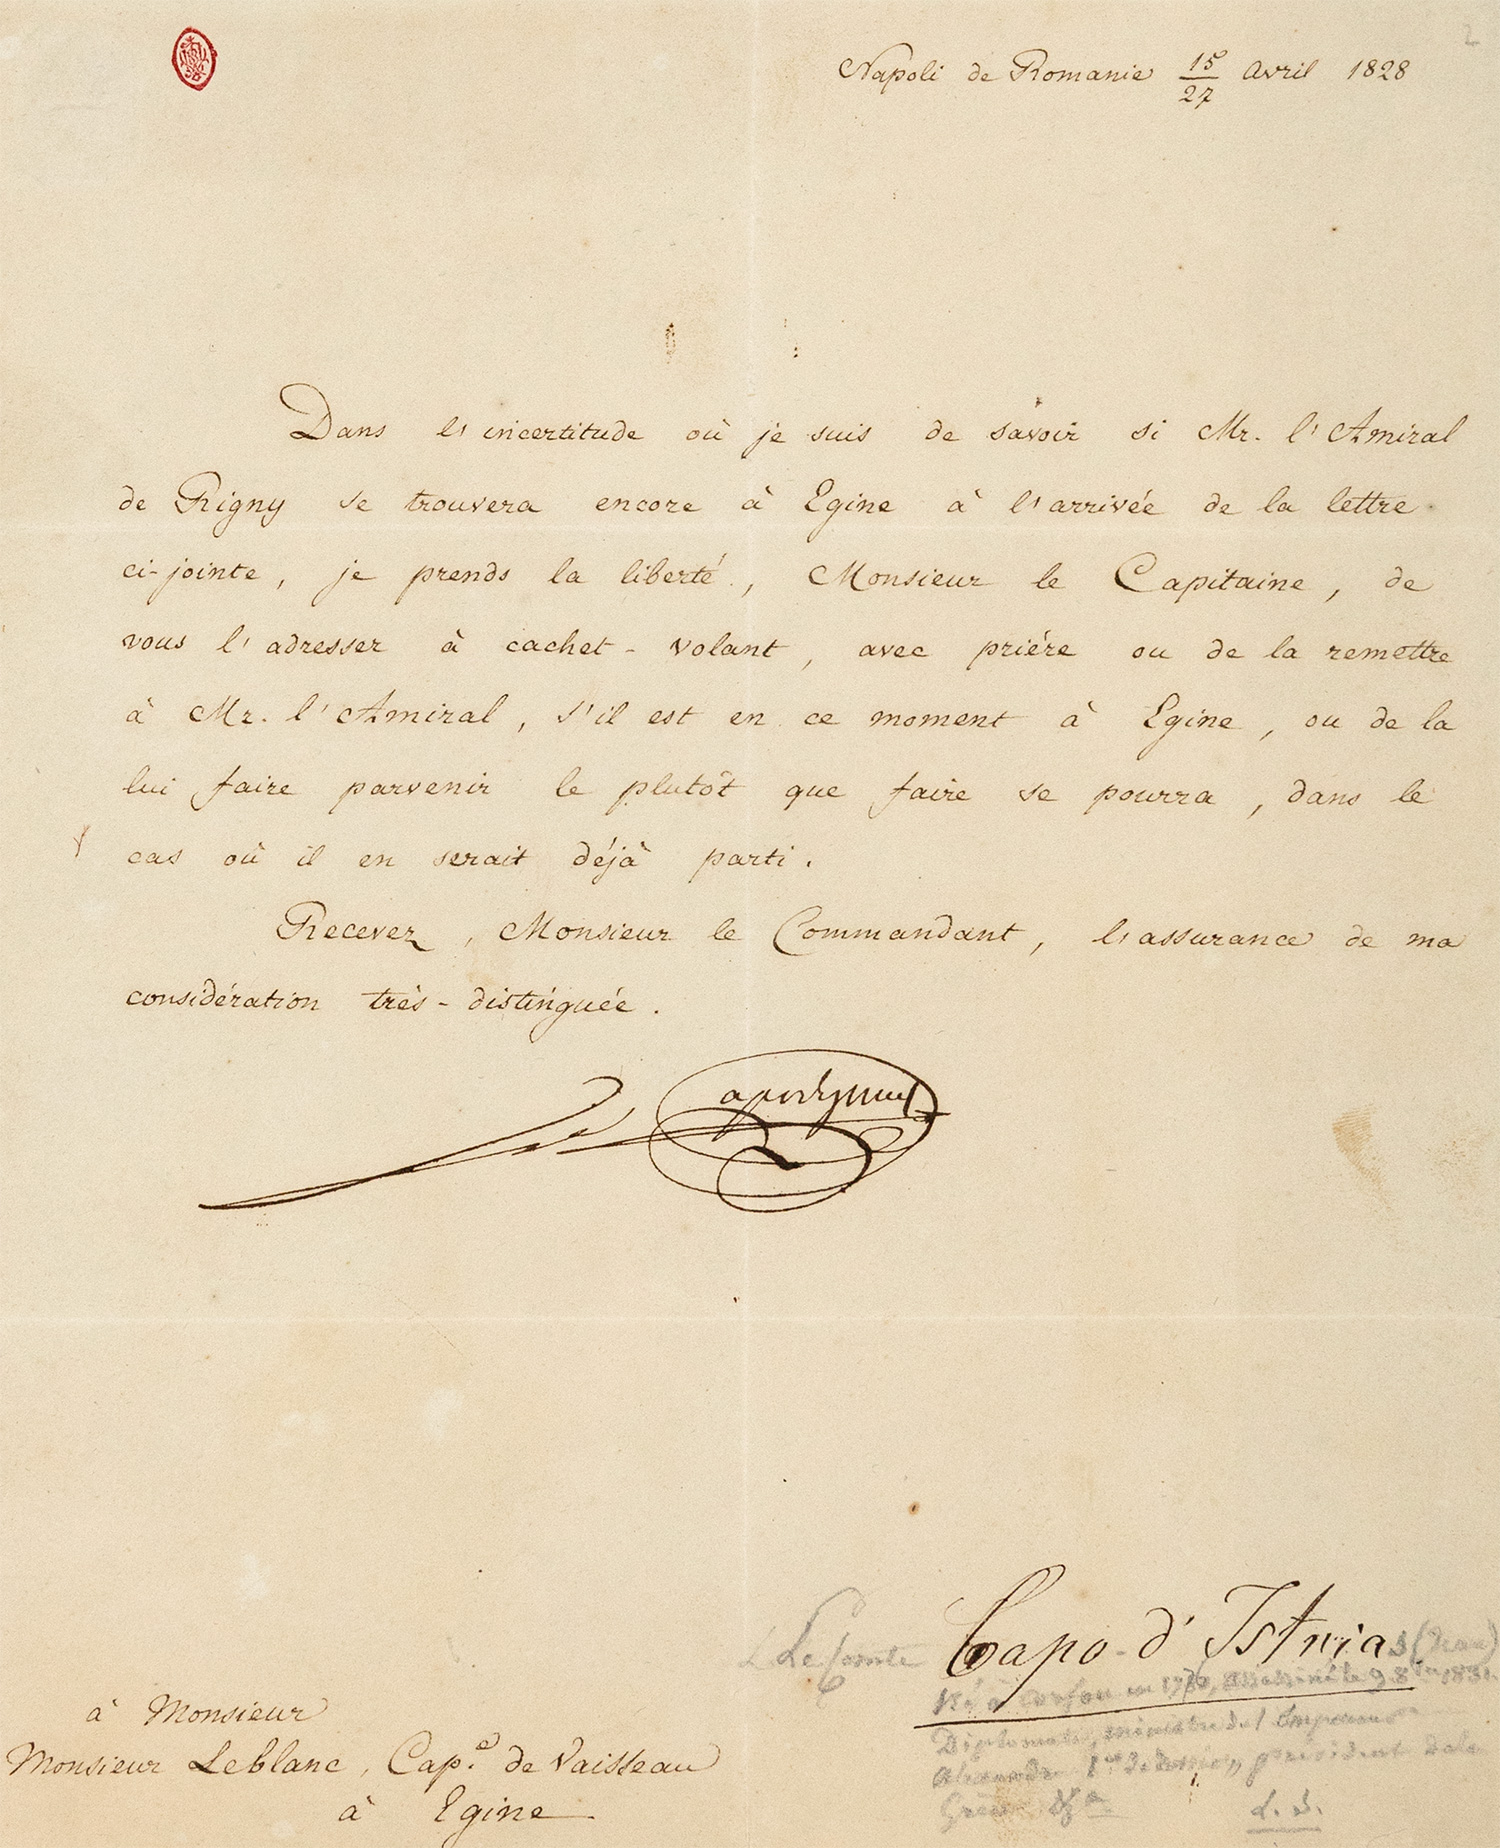 Napoli de Romanie 15/27 Avril 1828
Dans l'incertitude où je suis de savoir si Mr. l'Amiral
de Rigny se trouvera encore à Egine à l'arrivée de la lettre
ci-jointe, je prends la liberté, Monsieur le Capitaine, de
vous l'adresser à cachet-volant, avec prière ou de la remettre
à Mr. l'Amiral, s'il est en ce moment à Egine, ou de la
lui faire parvenir le plutôt que faire se pourra, dans le
cas où il en serait déjà parti.
Recevez, Monsieur le Commandant, l'assurance de ma
considération très-distinguée.
à Monsieur
Monsieur Leblanc, Cap.e de Vaisseau
à Egine
Le Comte Capo-d'Istrias (Jean)
Né à Corfou en 1776, assassiné le 9 8bre 1831.
Diplomate, ministre de l'Empereur
Alexandre 1er de Russie, président de la
Grèce &a
L. S.